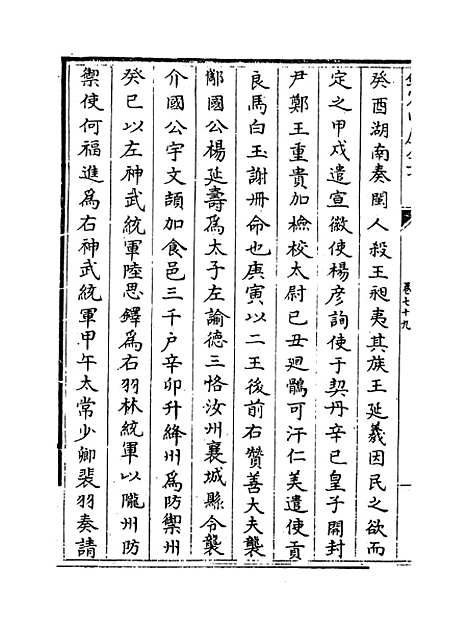 卷七十九
癸酉湖南奏閩人殺王昶夷其族王延羲因民之欲而
定之甲戌遣宣徽使楊彦詢使于契丹辛巳皇子開封
尹鄭王重貴加檢校太尉已丑廻鶻可汗仁美遣使貢
良馬白玉謝冊命也庚寅以二王後前右贊善大夫襲
鄅國公楊延壽爲太子左諭德三恪汝州襄城縣令襲
介國公宇文頡加食邑三千户辛卯升絳州爲防禦州
癸巳以左神武統軍陸思鐸爲右羽林統軍以隴州防
禦使何福進爲右神武統軍甲午太常少卿裴羽奏請